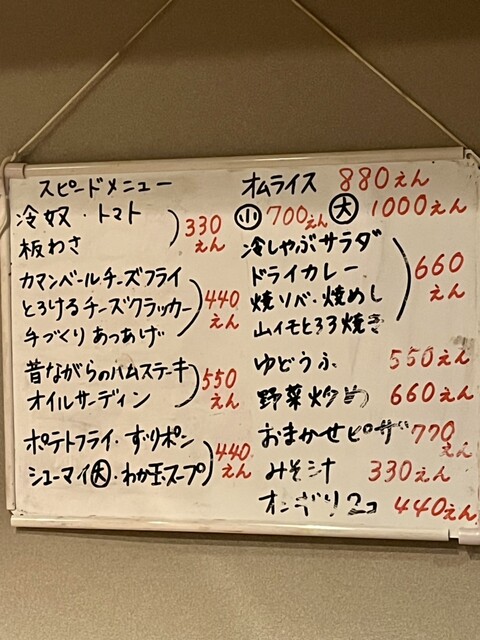 スピードメニュー
冷奴・トマト
板わさ
330えん
カマンベールチーズフライ
とろけるチーズクラッカー
手づくりあつあげ
440えん
昔ながらのハムステーキ
オイルサーディン
550えん
ポテトフライ・ずリポン
シューマイ大・わか玉スープ
440えん
オムライス 880えん
小 700えん 大 1000えん
冷しゃぶサラダ
ドライカレー
焼ソバ・焼めし
山イモとろろ焼き
660えん
ゆどうふ 550えん
野菜炒め 660えん
おまかせピザ 770えん
みそ汁 330えん
オニギリ2コ 440えん